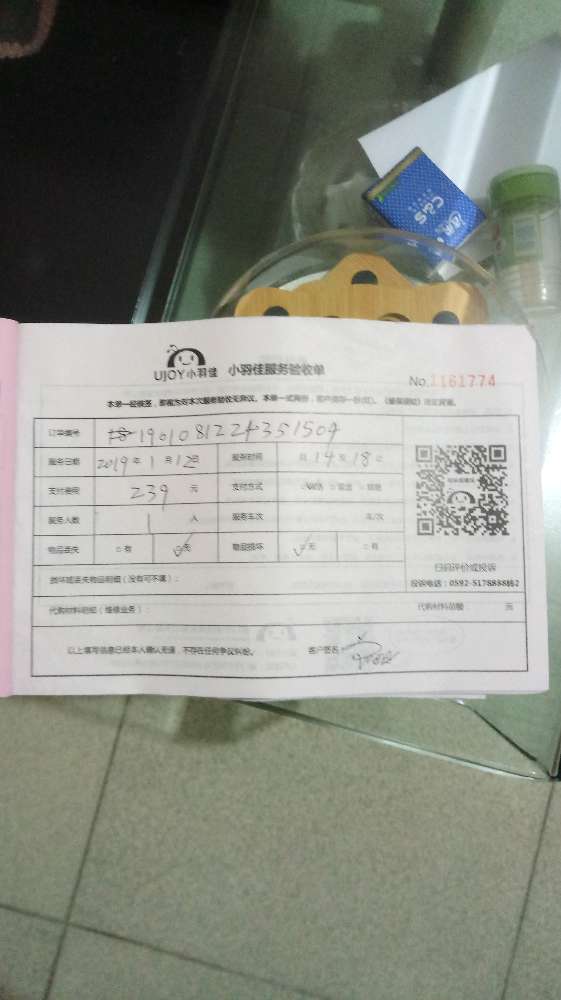 C&S
UJOY小羽佳 小羽佳服务验收单
No.1161774
本单一经核签，即视为对本次服务验收无异议。本单一式两份，
订单编号 1901081224351509
服务日期 2019年1月12日 服务时间 从14点18止
支付费用 239元 支付方式
服务人数 1人 服务车次 车/次
物品丢失 □有 □无 物品损坏 □无 □有
扫码评价或投诉
损坏或丢失物品明细（没有可不填）：
投诉电话：0592-5178888转2
代购材料明细（维修业务）： 代购材料总额： 元
以上填写信息已经本人确认无误，不存在任何争议纠纷。 客户签名：